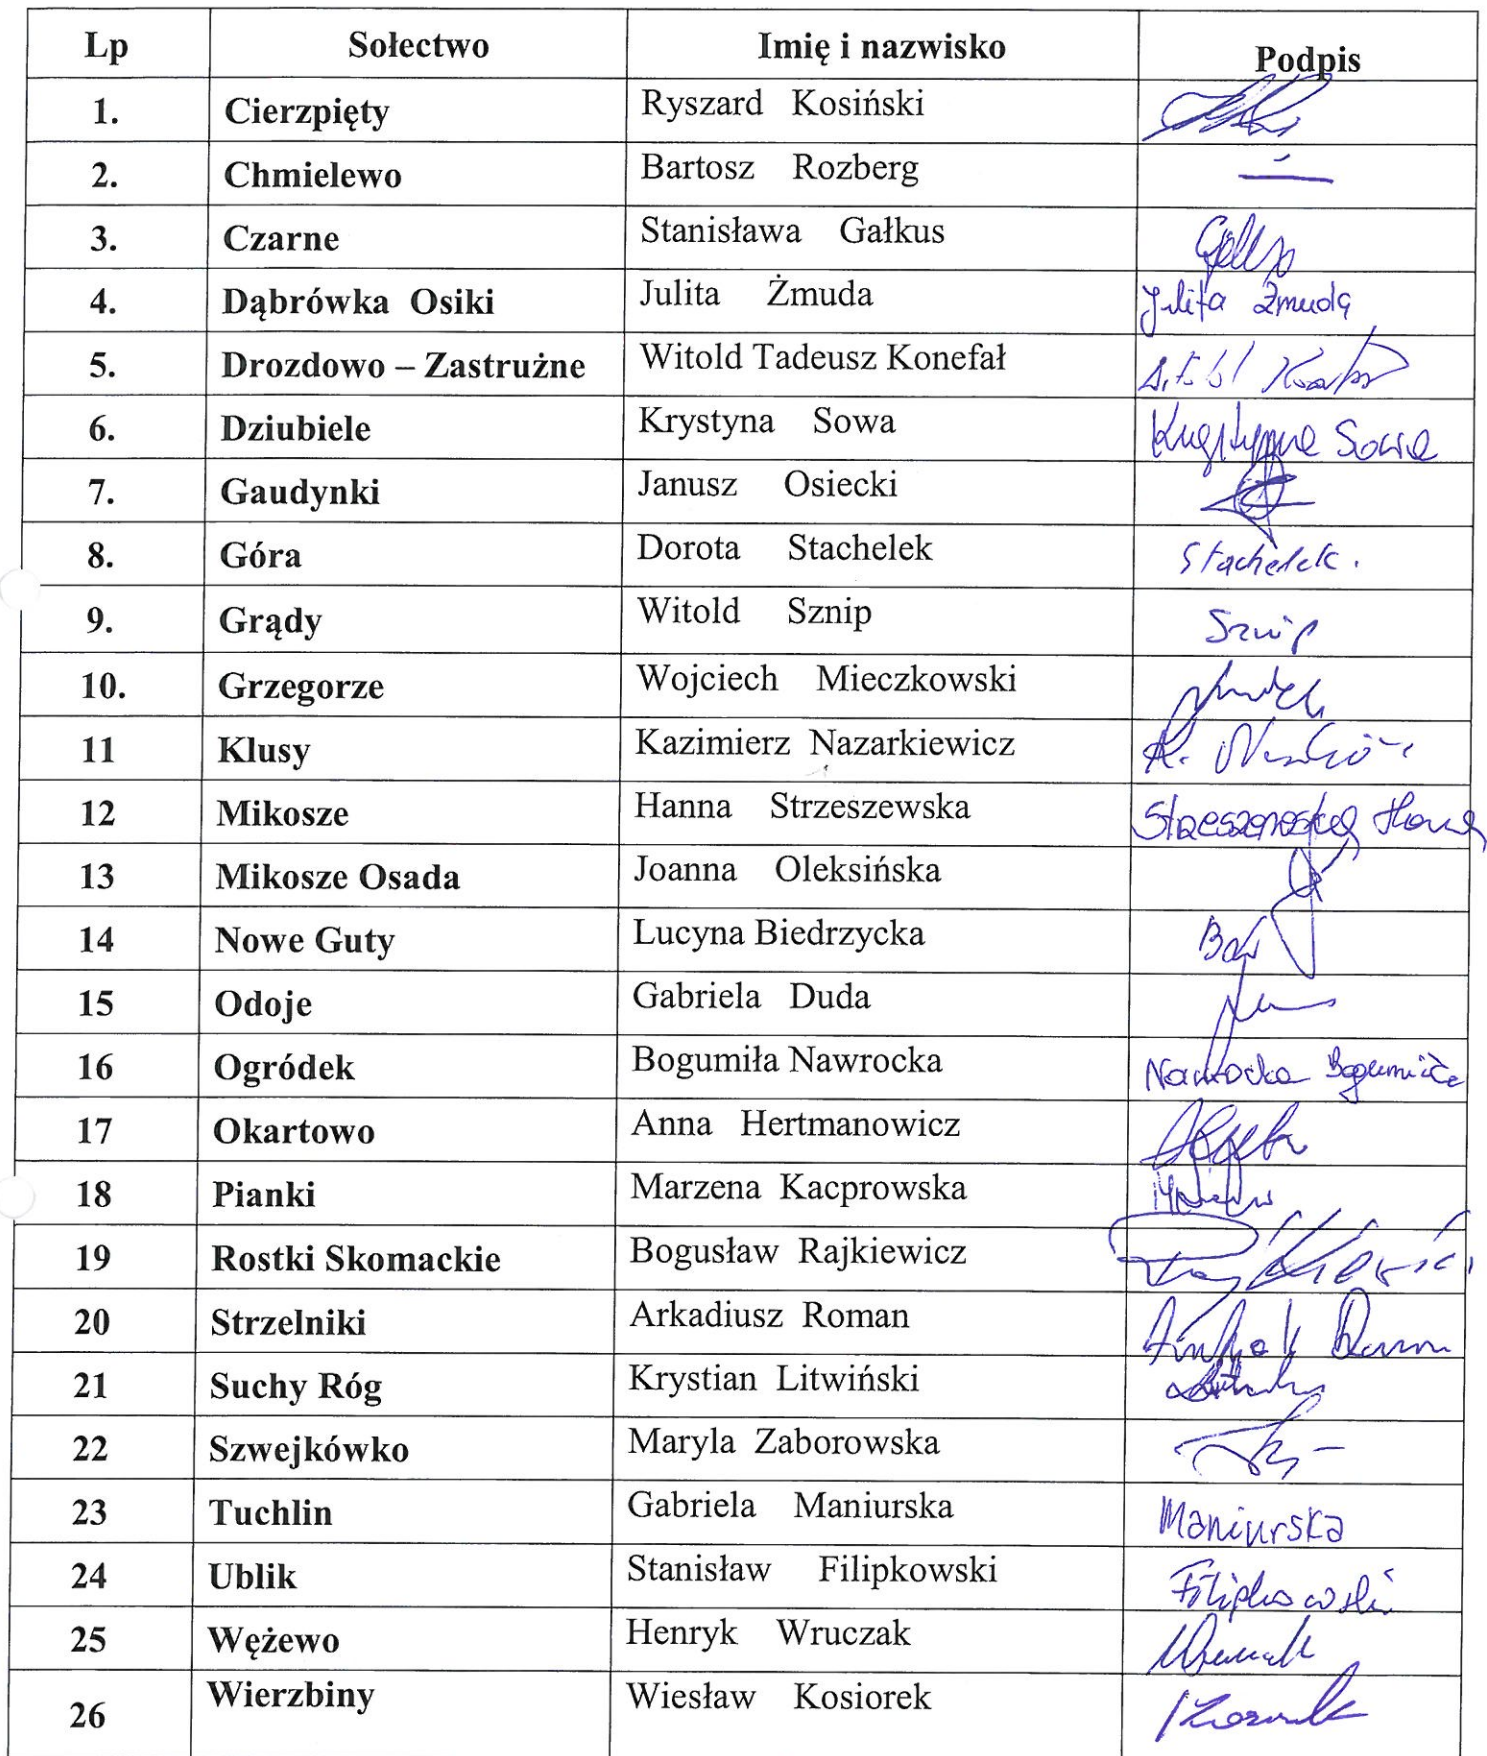 Lp Sołectwo Imię i nazwisko Podpis
1. Cierzpięty Ryszard Kosiński
2. Chmielewo Bartosz Rozberg —
3. Czarne Stanisława Gałkus
4. Dąbrówka Osiki Julita Żmuda Julita Żmuda
5. Drozdowo – Zastrużne Witold Tadeusz Konefał
6. Dziubiele Krystyna Sowa Krystyna Sowa
7. Gaudynki Janusz Osiecki
8. Góra Dorota Stachelek Stachelek.
9. Grądy Witold Sznip Sznip
10. Grzegorze Wojciech Mieczkowski
11 Klusy Kazimierz Nazarkiewicz K.
12 Mikosze Hanna Strzeszewska Strzeszewska Hanna
13 Mikosze Osada Joanna Oleksińska
14 Nowe Guty Lucyna Biedrzycka
15 Odoje Gabriela Duda
16 Ogródek Bogumiła Nawrocka Nawrocka Bogumiła
17 Okartowo Anna Hertmanowicz
18 Pianki Marzena Kacprowska
19 Rostki Skomackie Bogusław Rajkiewicz
20 Strzelniki Arkadiusz Roman
21 Suchy Róg Krystian Litwiński
22 Szwejkówko Maryla Zaborowska
23 Tuchlin Gabriela Maniurska Maniurska
24 Ublik Stanisław Filipkowski Filipkowski
25 Wężewo Henryk Wruczak
26 Wierzbiny Wiesław Kosiorek